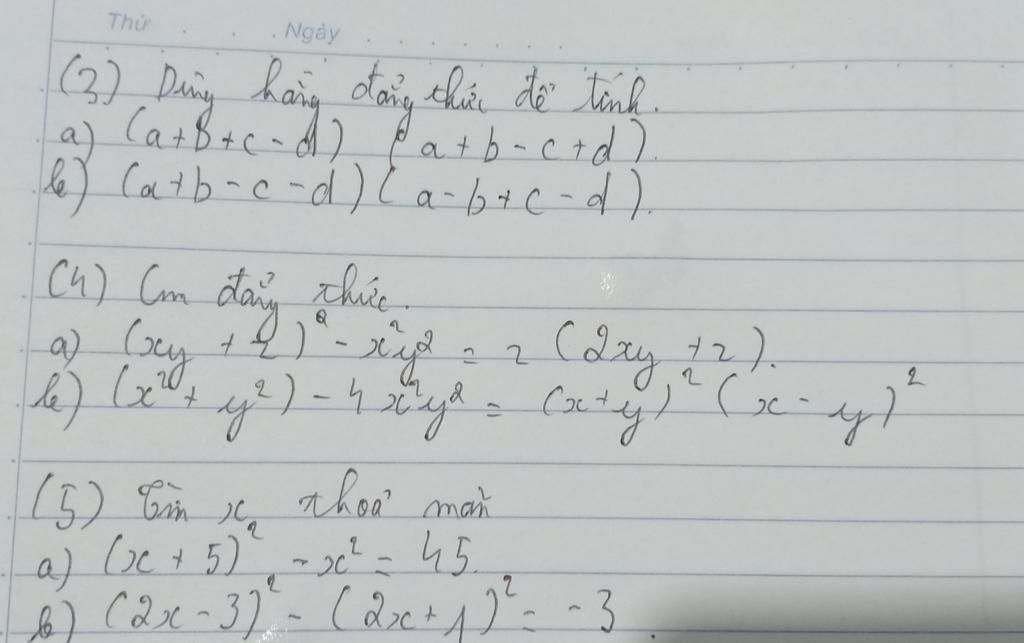 Thứ . . . Ngày . . . . . . .
(3) Dùng hằng đẳng thức để tính.
a) (a+b+c-d) (a+b-c+d).
b) (a+b-c-d)(a-b+c-d).
(4) Cm đẳng thức.
a) (xy+z)² - x²y² = z (2xy+z).
b) (x²+y²) - 4x²y² = (x+y)² (x-y)²
(5) Tìm x thoả mãn
a) (x+5)² - x² = 45.
b) (2x-3)² - (2x+1)² = -3.